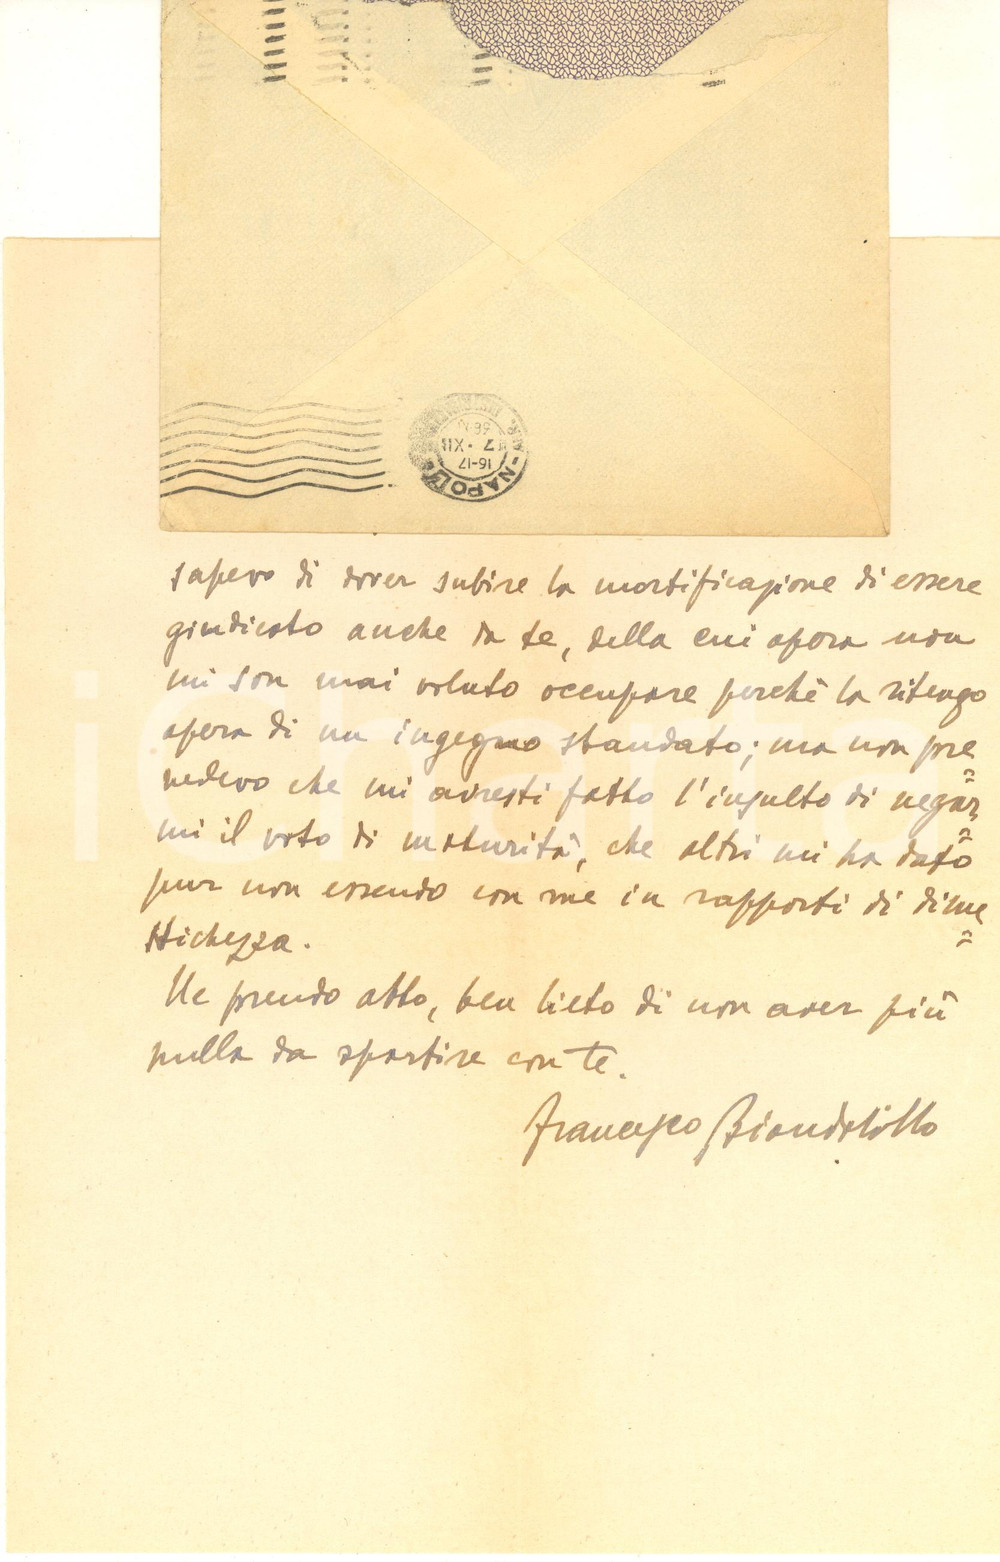 NAPOLI
16-17
7·XII
sapevo di dover subire la mortificazione di essere
giudicato anche da te, della cui opera non
mi son mai voluto occupare perchè la ritengo
opera di un ingegno standato; ma non pre=
vedevo che mi avresti fatto l'insulto di negar=
mi il voto di maturità, che altri mi ha dato
pur non essendo con me in rapporti di dime=
stichezza.
Ne prendo atto, ben lieto di non aver più
nulla da spartire con te.
Francesco Biondolillo
iCharta